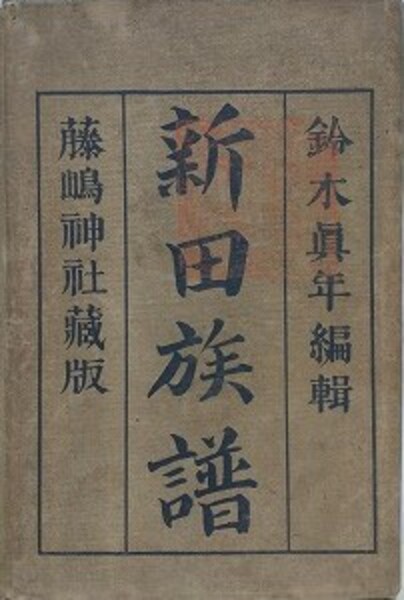 鈴木眞年編輯
新田族譜
藤嶋神社藏版